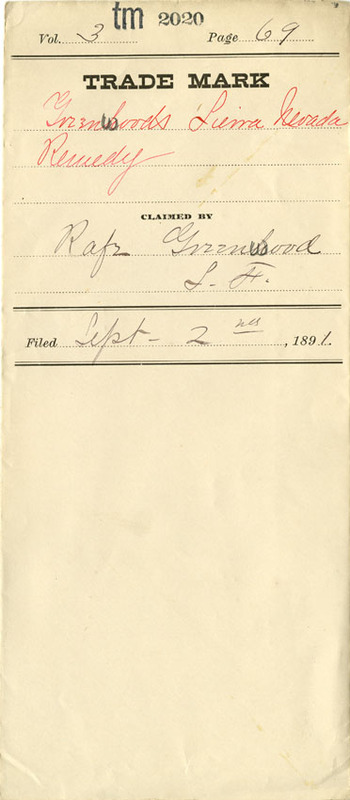 tm 2020
Vol. 3 Page 69
TRADE MARK
Greenwoods Sierra Nevada
Remedy
CLAIMED BY
Greenwood
S. F.
Filed Sept - 2 nd, 1891.